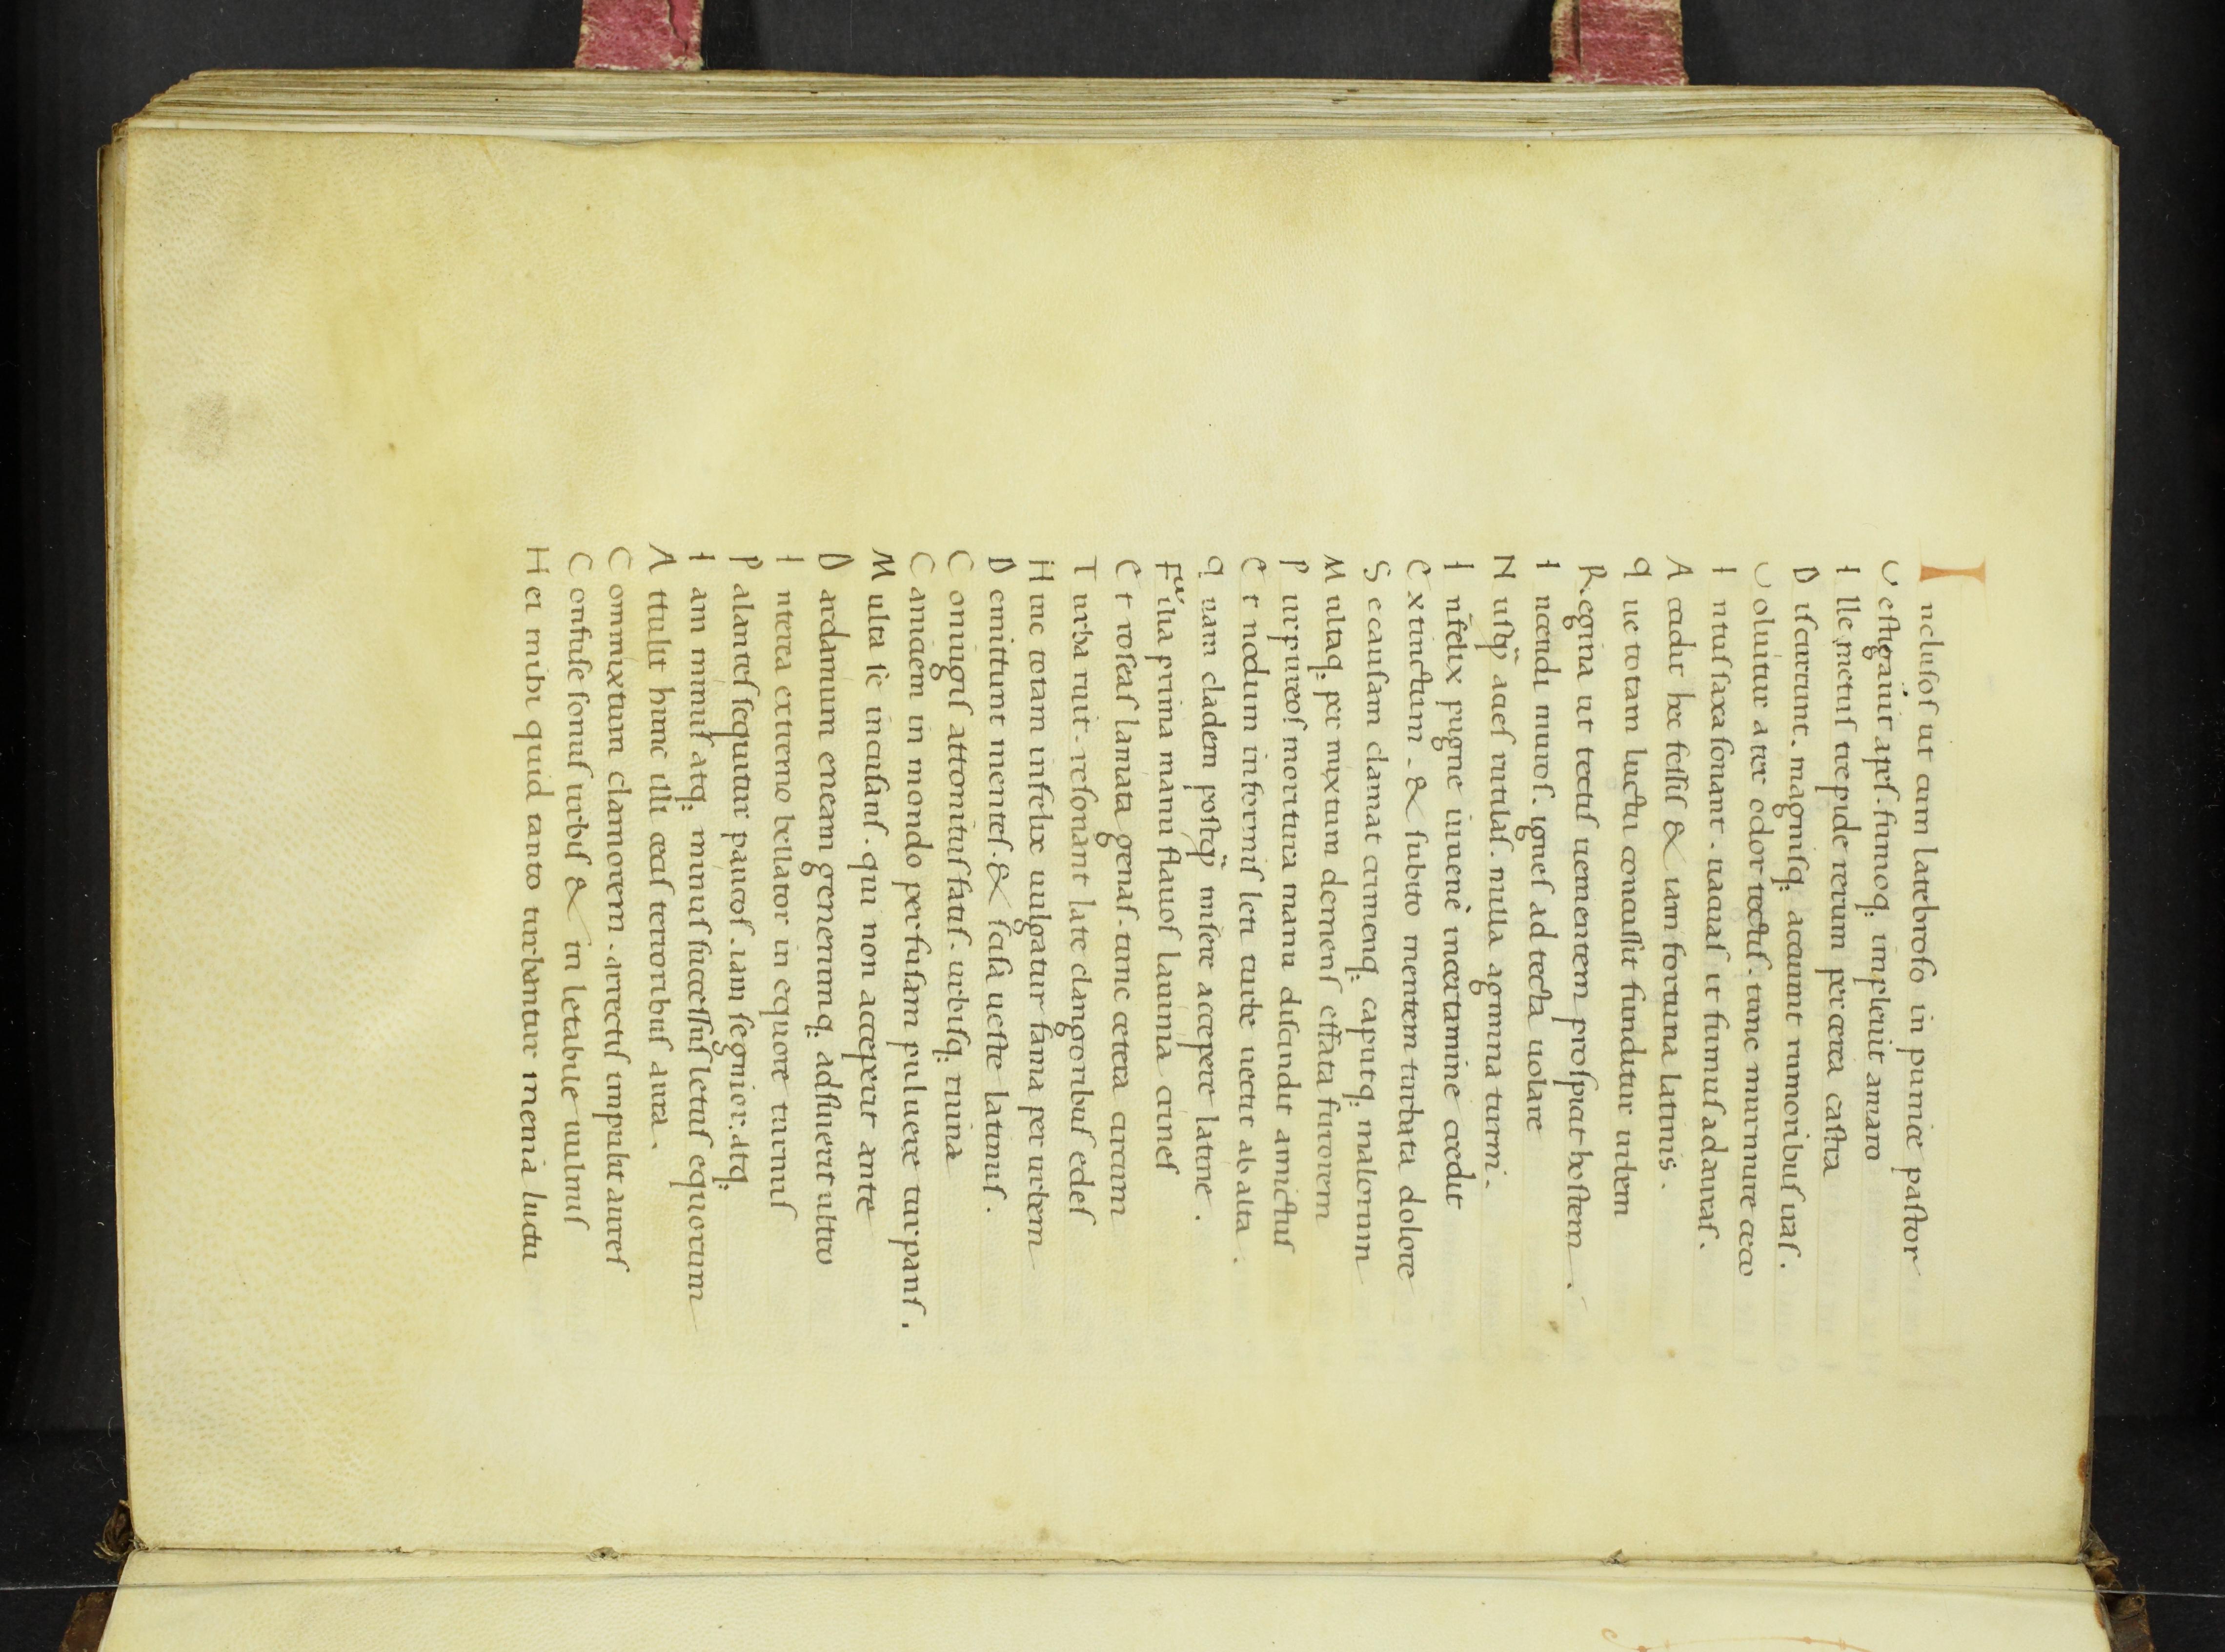 Incluſoſ ut cum latebroſo in pumice paſtor
Veſtigauit apeſ. fumoq; impleuit amaro
Ille metuſ trepide rerum per cerea caſtra
Diſcurrunt. magniſq; accuunt rumoribuſ iraſ.
Voluitur ater odor tectiſ. tunc murmure ceco
Intuſ ſaxa ſonant. uacuaſ it fumuſ ad auraſ.
Accidit hęc feſſiſ & iam fortuna latinis.
que totam luctu concuſſit funditur urbem
Regina ut tectiſ uementem proſpicit hoſtem.
Incendi muroſ. igneſ ad tecta uolare
Nuſq̃ acieſ rutilaſ. nulla agmina turni.
Infelix pugne iuuenē incertamine credit
Extinctum. & ſubito mentem turbata dolore
Se cauſam clamat crimenq; caputq; malorum
Multaq; per mixtum demenſ effata furorem
Purpureoſ moritura manu diſcindit amictuſ
Et nodum informiſ leti turbe nectit ab alta.
quam cladem poſtq̃ miſere accepere latine.
Filia prima manu flauoſ lauinia crineſ
Et roſeaſ lamata genaſ. tunc cetera circum
Turba ruit. reſonant late clangoribuſ edeſ
Hinc totam infelix uulgatur fama per urbem
Demittunt menteſ. & ſciſa ueſte latinuſ.
Coniugiſ attonituſ fatiſ. urbiſq; ruina
Caniciem in mondo perfuſam puluere turpanſ.
Multa ſe incuſanſ. qui non acceperit ante
Dardanium eneam generumq; adſiuerit ultro
Interea extremo bellator in equore turnuſ
Palanteſ ſequitur paucoſ. iam ſegnior. atq;
Iam minuſ atq; minuſ ſucceſſuſ letuſ equorum
Attulit hunc illi ceciſ terroribuſ aura.
Commixtum clamorem. arrectiſ impulit aureſ
Confuſe ſonuſ urbiſ & in letabile uulmuſ
Hei mihi quid tanto turbantur menia luctu